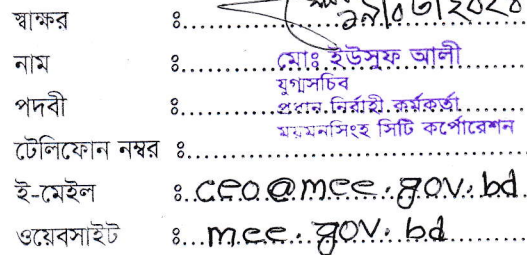 স্বাক্ষর ঃ
নাম ঃ মোঃ ইউসুফ আলী
যুগ্মসচিব
পদবী ঃ প্রধান নির্বাহী কর্মকর্তা
ময়মনসিংহ সিটি কর্পোরেশন
টেলিফোন নম্বর ঃ
ই-মেইল ঃ ceo@mcc.gov.bd
ওয়েবসাইট ঃ mcc.gov.bd